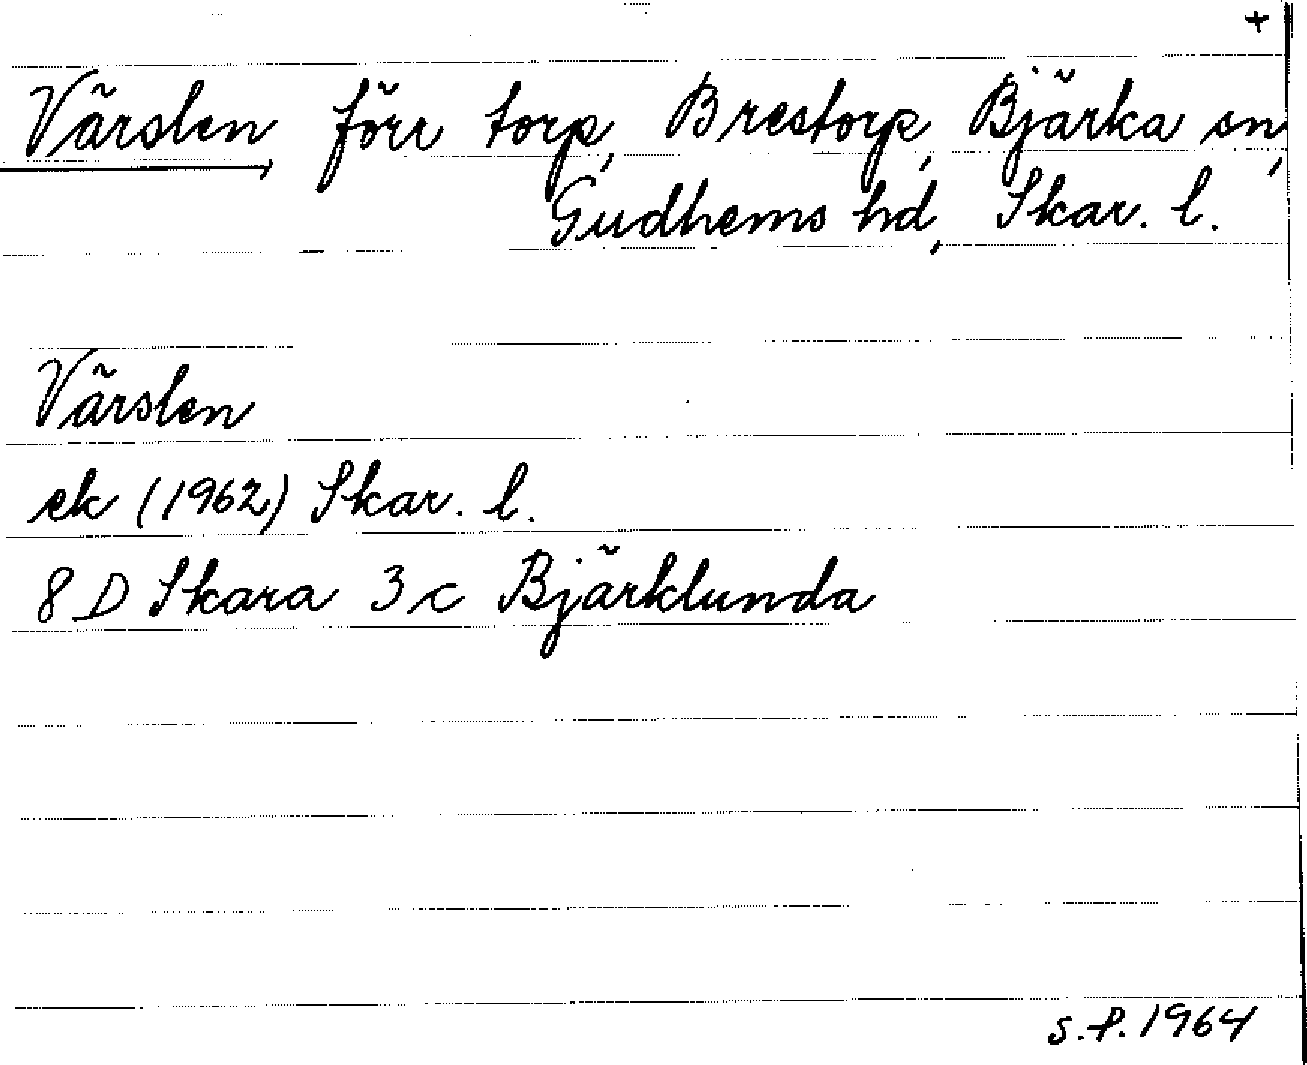 +
Värslen, förr torp, Brestorp, Bjärka sn,
Gudhems hd, Skar. l.
Värslen
ek (1962) Skar. l.
8 D Skara 3 c Bjärklunda
S.F. 1964